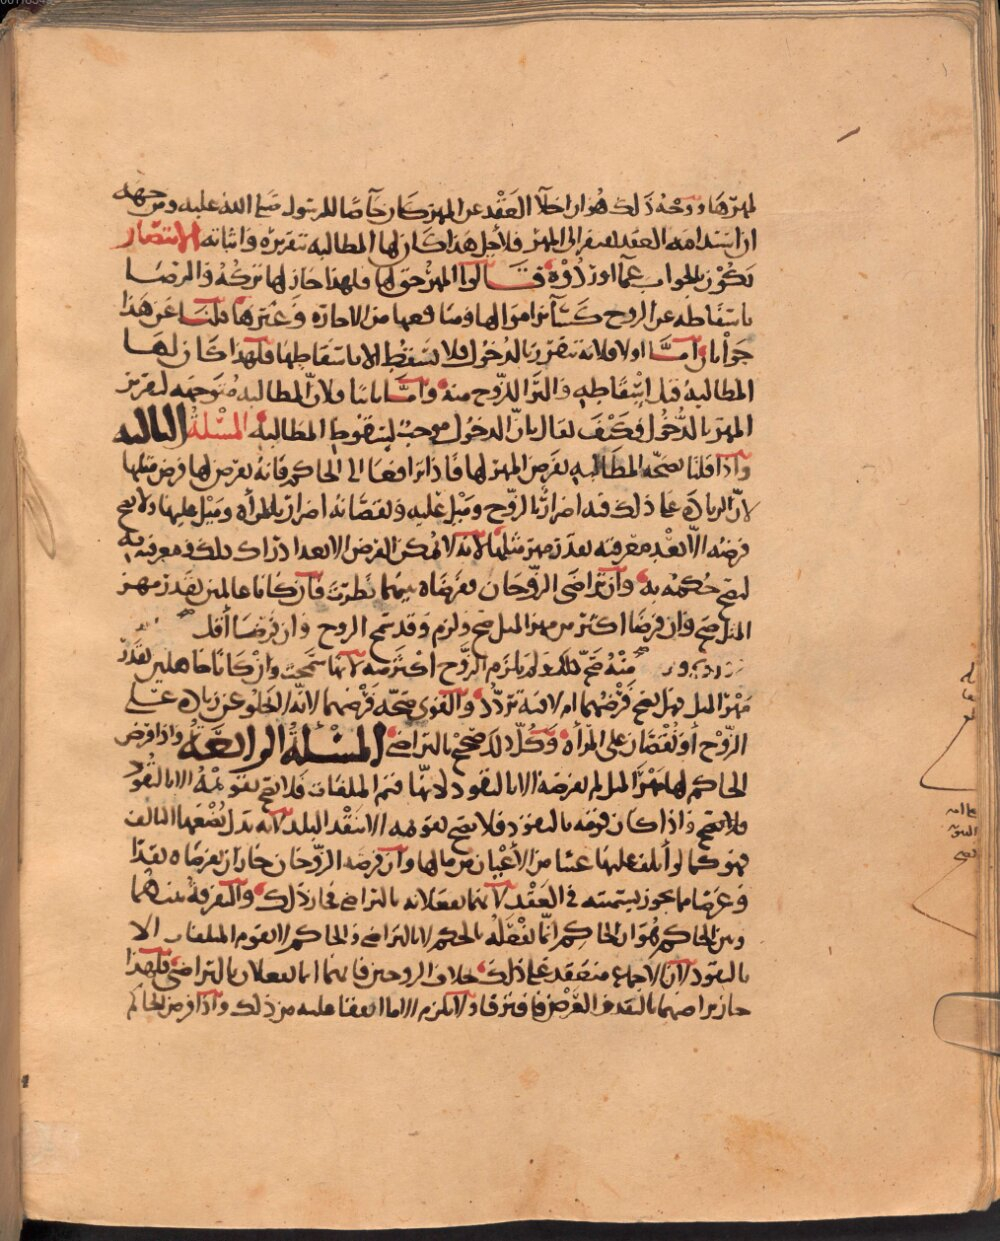 لمهرها ووجه ذلك هو ان اخلا العقد عن المهر كان خاصا للرسول صلى الله عليه ومن جهه
ان استدامه العقد يفتقر الى المهر فلاجل هذا كان لها المطالبه بتقريره واثباته الانتصار
يكون بالجواب عما اوردوه قالوا المهر حق لها فلهذا جاز لها تركه والرضا
باسقاطه عن الزوج كسائر اموالها ومنافعها من الاجازه وغيرها قلنا عن هذا
جوابان اما اولا فلانه يتقرر بالدخول فلا يسقط الا باسقاطها فلهذا كان لها
المطالبه قبل اسقاطه والتزام الزوج منه واما ثانيا فلان المطالبه متوجهه لتقرير
المهر بالدخول فكيف يقال بان الدخول موجب لسقوط المطالبه المسئلة الثالثه
واذا قلنا بصحه المطالبه بفرض المهر لها فاذا ترافعا الى الحاكم فانه يفرض لها فرض مثلها
لان الزياده على ذلك فيه اضرار بالزوج وميل عليه ونقصانه اضرار بالمرأه وميل عليها ولا يصح
فرضه الا بعد معرفته بقدر مهر مثلها لانه لا يمكن الفرض الا بعد ادراك ذلك ومعرفته به
ليصح حكمه به وان تراضى الزوجان بفرضاه بينهما نظرت فان كانا عالمين بقدر مهر
المثل صح وان فرضا اكثر من مهر المثل صح ولزم وقد سمح الزوج وان فرضا اقل
منه صح ذلك ولم يلزم الزوج اكثر منه لانها سمحت وان كانا جاهلين بقدر
مهر المثل فهل يصح فرضهما ام لا فيه تردد والقوي صحه فرضهما لانه لا يخلو عن زياده على
الزوج او نقصان على المرأه وكل ذلك صحيح بالتراضي المسئلة الرابعة واذا فرض
الحاكم لها مهر المثل لم يفرضه الا بالنقود لانها قيم المتلفات فلا يصح تقويمه الا بالنقود
ولا يصح واذا كان قومه بالنقود فلا يصح تقويمه الا بنقد البلد لانه بدل بضعها التالف
فهو كما لو اتلف عليها عينا من الاعيان من مالها وان فرضه الزوجان جاز ان يفرضاه نقدا
وعرضا مما يجوز تسميته في العقد لانهما يفعلانه بالتراضي فجاز ذلك والتفرقة بينهما
وبين الحاكم هو ان الحاكم انما يفعله بالحكم لا بالتراضي والحاكم لا يقوم المتلفات الا
بالنقود لان الاجماع منعقد على ذلك بخلاف الزوجين فانهما انما يفعلان بالتراضي فلهذا
جاز تراضيهما بالنقد والعرض فافترقا ولا يلزم الا ما اتفقا عليه من ذلك واذا فرض الحاكم